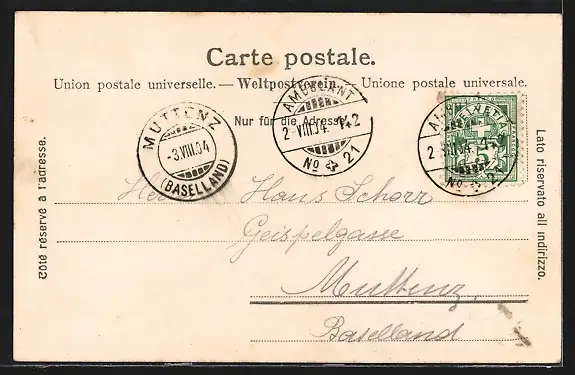 Carte postale.
Union postale universelle. — Weltpostverein — Unione postale universale.
Nur für die Adresse.
AMBULANT
2 VIII 04
No 21
MUTTENZ
-3.VIII.04
(BASELLAND)
AMBULANT
No 2
Côté réservé à l'adresse.
Lato riservato all indirizzo.
Herrn Hans Schorr
Geispelgasse
Muttenz
Baselland